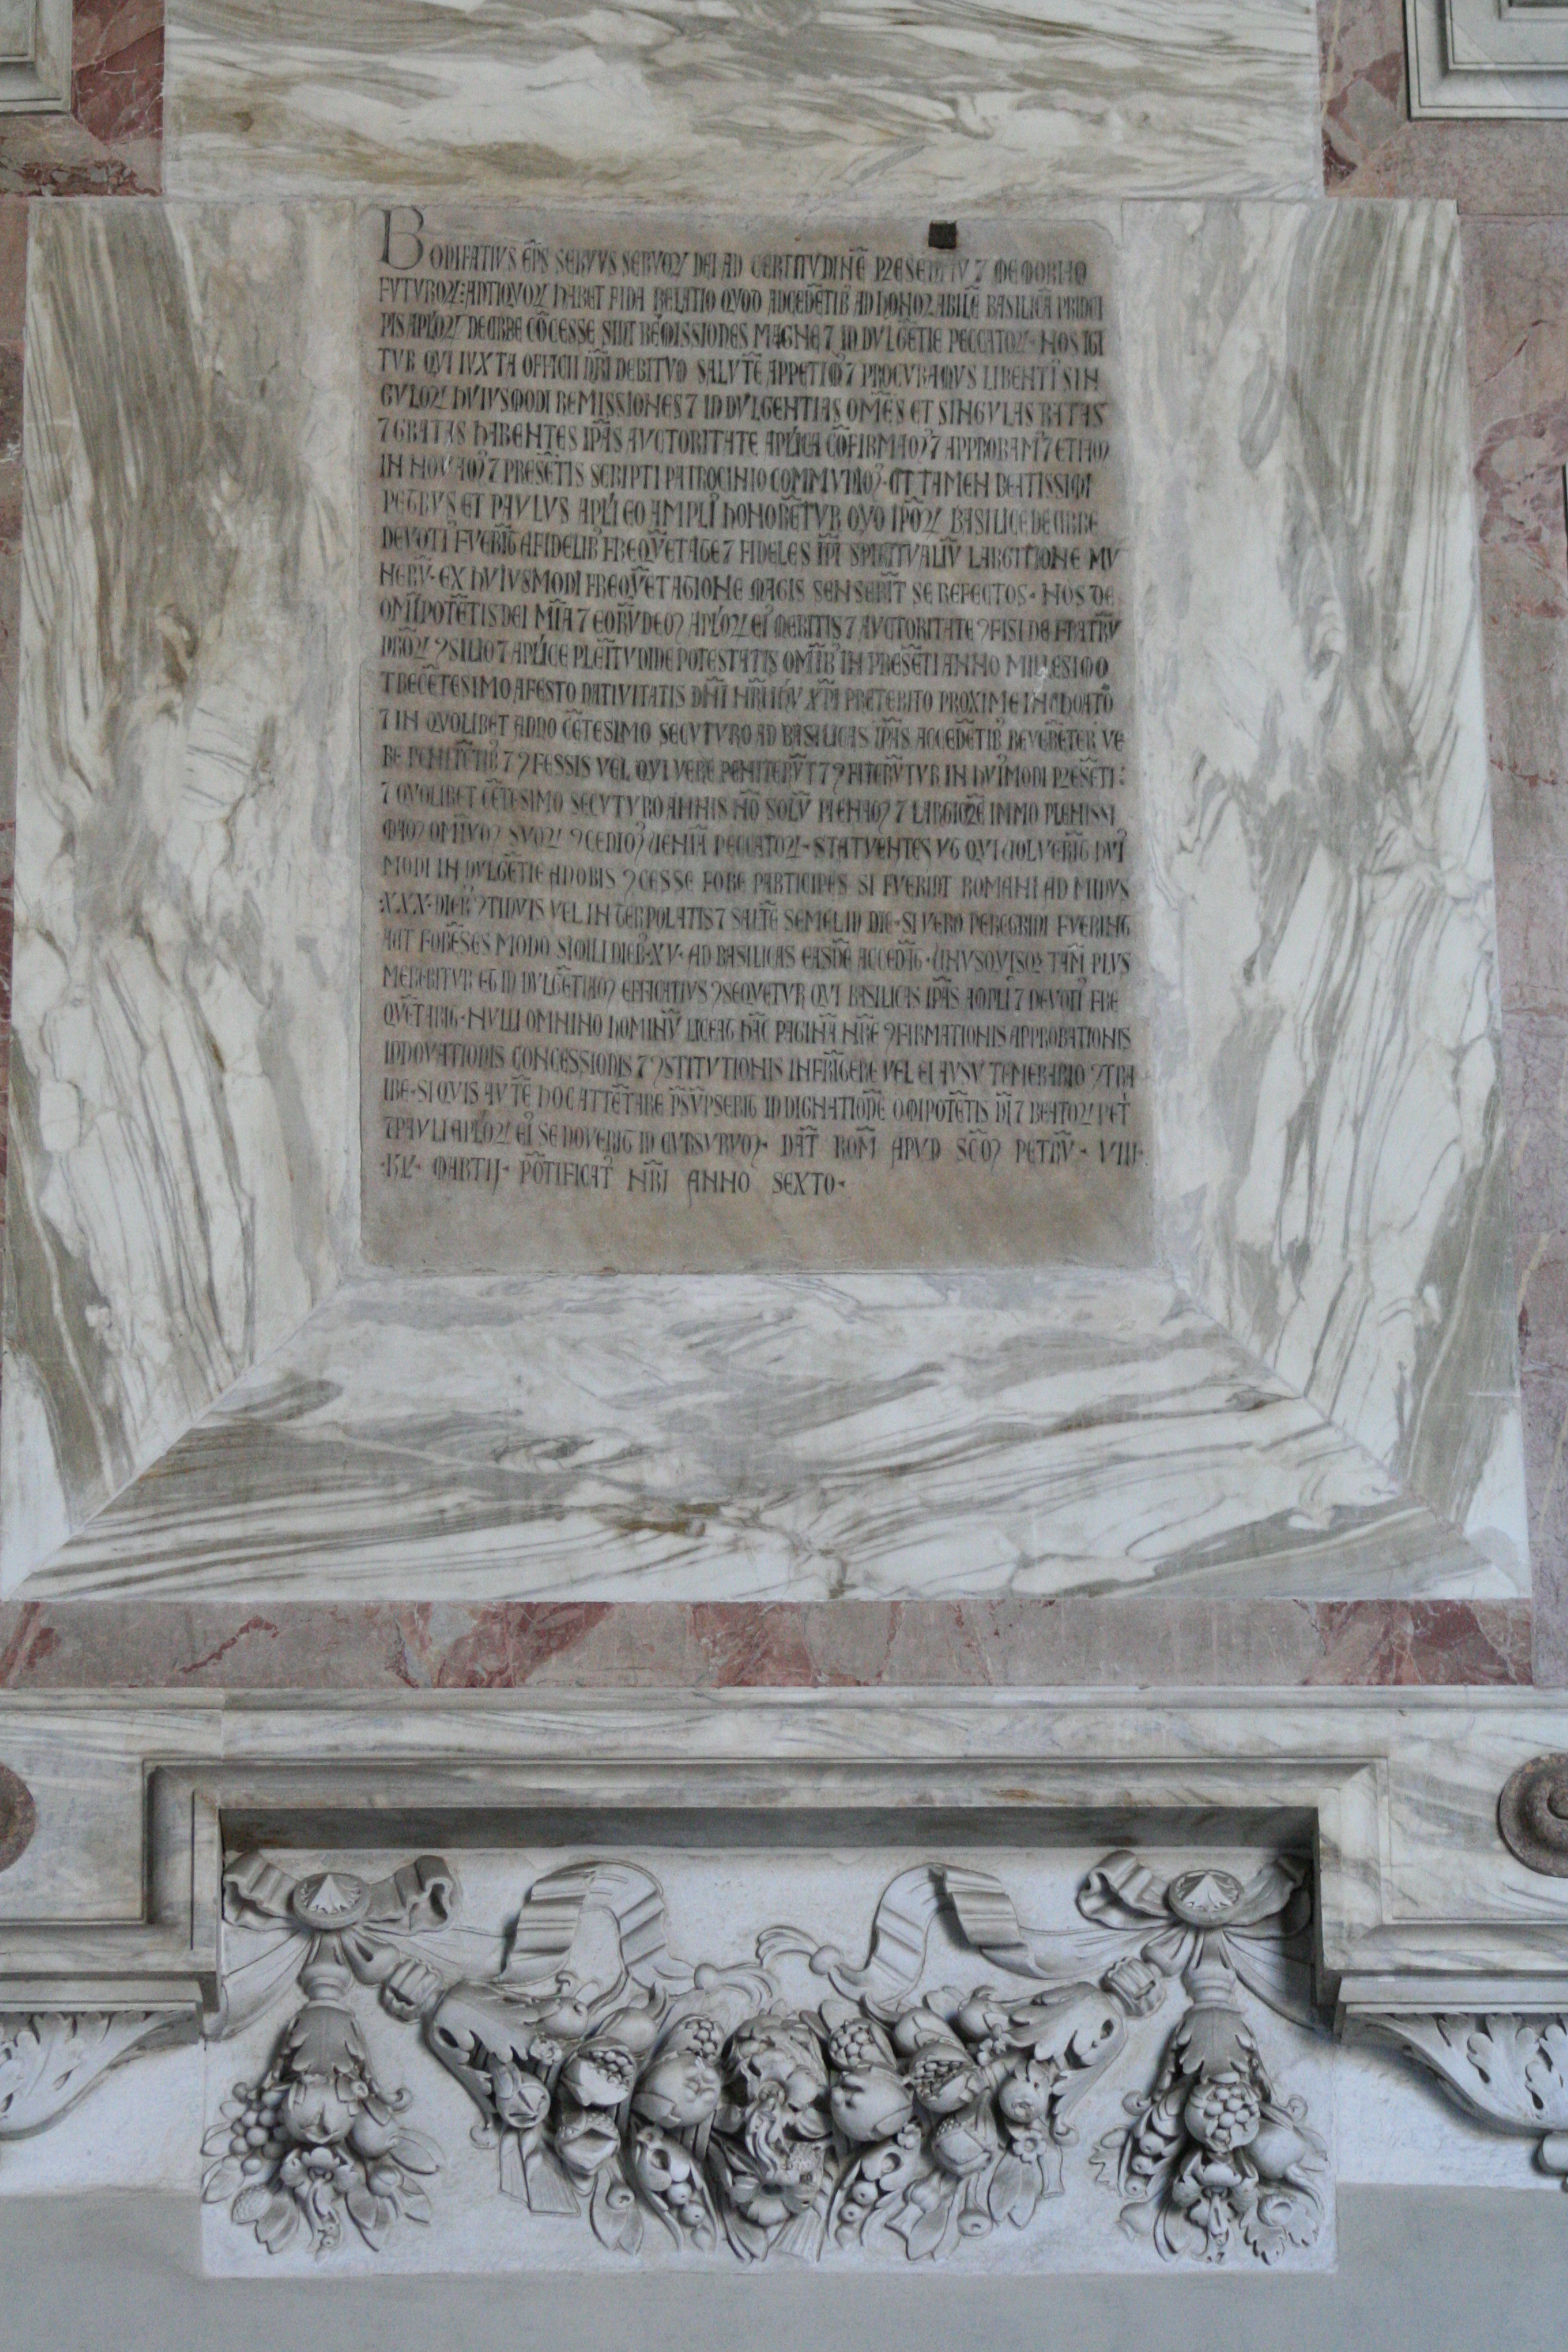 BONIFATIUS EP̄S SERVUS SERVOꝜ DEI AD CERTITVDINĒ PRESENTIV̄ ⁊ MEMORIAꝫ
FVTVROꝜ: ANTIQVOꝜ HABET FIDA RELATIO QVOD ADCEDĒTIBꝰ AD HONORABILĒ BASILICĀ PRINCI
PIS APL̄OꝜ DE URBE CŌCESSE SUNT REMISSIONES MAGNE ⁊ INDVLGĒTIE PECCATOꝜ · NOS IGI
TVR QVI IVXTA OFFICII NR̄I DEBITVꝫ SALVTĒ APPETIMꝰ ⁊ PROCVRAMVS LIBENTIꝰ SIN
GVLOꝜ HVIVSMODI REMISSIONES ⁊ INDVLGENTIAS OM̄ES ET SINGVLAS RATAS
⁊ GRATAS HABENTES IP̄AS AVCTORITATE APL̄ICA CŌFIRMAMꝰ ⁊ APPROBAMꝰ ⁊ ETIAꝫ
INNOVAMꝰ ⁊ PRESĒTIS SCRIPTI PATROCINIO COMMVNIMꝰ · UT TAMEN BEATISSIMI
PETRVS ET PAVLVS APL̄I EO AMPLIꝰ HONORĒTVR QVO IPŌꝜ BASILICE DE URBE
DEVOTIꝰ FVERĪT A FIDELIBꝰ FREQVĒTATE ⁊ FIDELES IP̄I SPIRITVALIV̄ LARGITIONE MV
NERV̄ · EX HVIVSMODI FREQVĒTATIONE MAGIS SENSERĪT SE REFECTOS · NOS DE
OM̄IPOTĒTIS DEI MIA ⁊ EORV̄DEꝫ APL̄OꝜ EIꝰ MERITIS ⁊ AVCTORITATE ꝯFISI DE FRATRV̄
NR̄OꝜ ꝯSILIO ⁊ APL̄ICE PLENITVDINE POTESTATIS OM̄IBꝰ IN PRESĒTI ANNO MILLESIMO
TRECĒTESIMO A FESTO NATIVITATIS DN̄I NR̄I IH̄V XP̄I PRETERITO PROXIME INCHOATO
⁊ IN QVOLIBET ANNO CĒTESIMO SECVTVRO AD BASILICAS IP̄AS ACCEDĒTIBꝰ REVERĒTER VE
RE PENITĒTIBꝰ ⁊ ꝯFESSIS VEL QVI VERE PENITEBV̄T ⁊ ꝯFITEBV̄TVR IN HVIꝰMODI PRESĒTI :
⁊ QVOLIBET CĒTESIMO SECVTVRO ANNIS NŌ SOLV̄ PLENAꝫ ⁊ LARGIORĒ IMMO PLENISSI
MAꝫ OMNIVꝫ SVOꝜ ꝯCEDIMꝰ VENIĀ PECCATOꝜ · STATVENTES VT QVI VOLVERĪT HVIꝰ
MODI INDVLGĒTIE A NOBIS ꝯCESSE FORE PARTICIPES SI FVERINT ROMANI AD MINVS
·XXX· DIEBꝰ ꝯTINVIS VEL INTERPOLATIS ⁊ SALTĒ SEMEL IN DIE · SI VERO PEREGRINI FVERINT
AUT FORĒSES MODO SIMILI DIEBꝰ XV · AD BASILICAS EASDĒ ACCEDĀT · UNVSQVISQꝫ TAM̄ PLVS
MEREBITVR ET INDVLGĒTIAꝫ EFFICATIVS ꝯSEQVETVR QVI BASILICAS IP̄AS AMPLIꝰ ⁊ DEVOTIꝰ FRE
QVĒTABIT · NVLLI OMNINO HOMINV̄ LICEAT HĀC PAGINĀ NR̄E ꝯFIRMATIONIS APPROBATIONIS
INNOVATIONIS CONCESSIONIS ⁊ ꝯSTITVTIONIS INFRĪGERE VEL EI AVSV TEMERARIO ꝯTRA
IRE · SI QVIS AVTĒ HOC ATTĒTARE PS̄VPSERIT INDIGNATIONĒ OMIPOTĒTIS DĪ ⁊ BEATOꝜ PET
⁊ PAVLI APL̄OꝜ EIꝰ SE NOVERIT INCVRSVRVꝫ · DAT̄ ROM̄ APVD SC̄Mꝫ PETRV̄ · VIII ·
·KL̄ · MARTIJ · PŌTIFICATꝰ NR̄I ANNO SEXTO ·